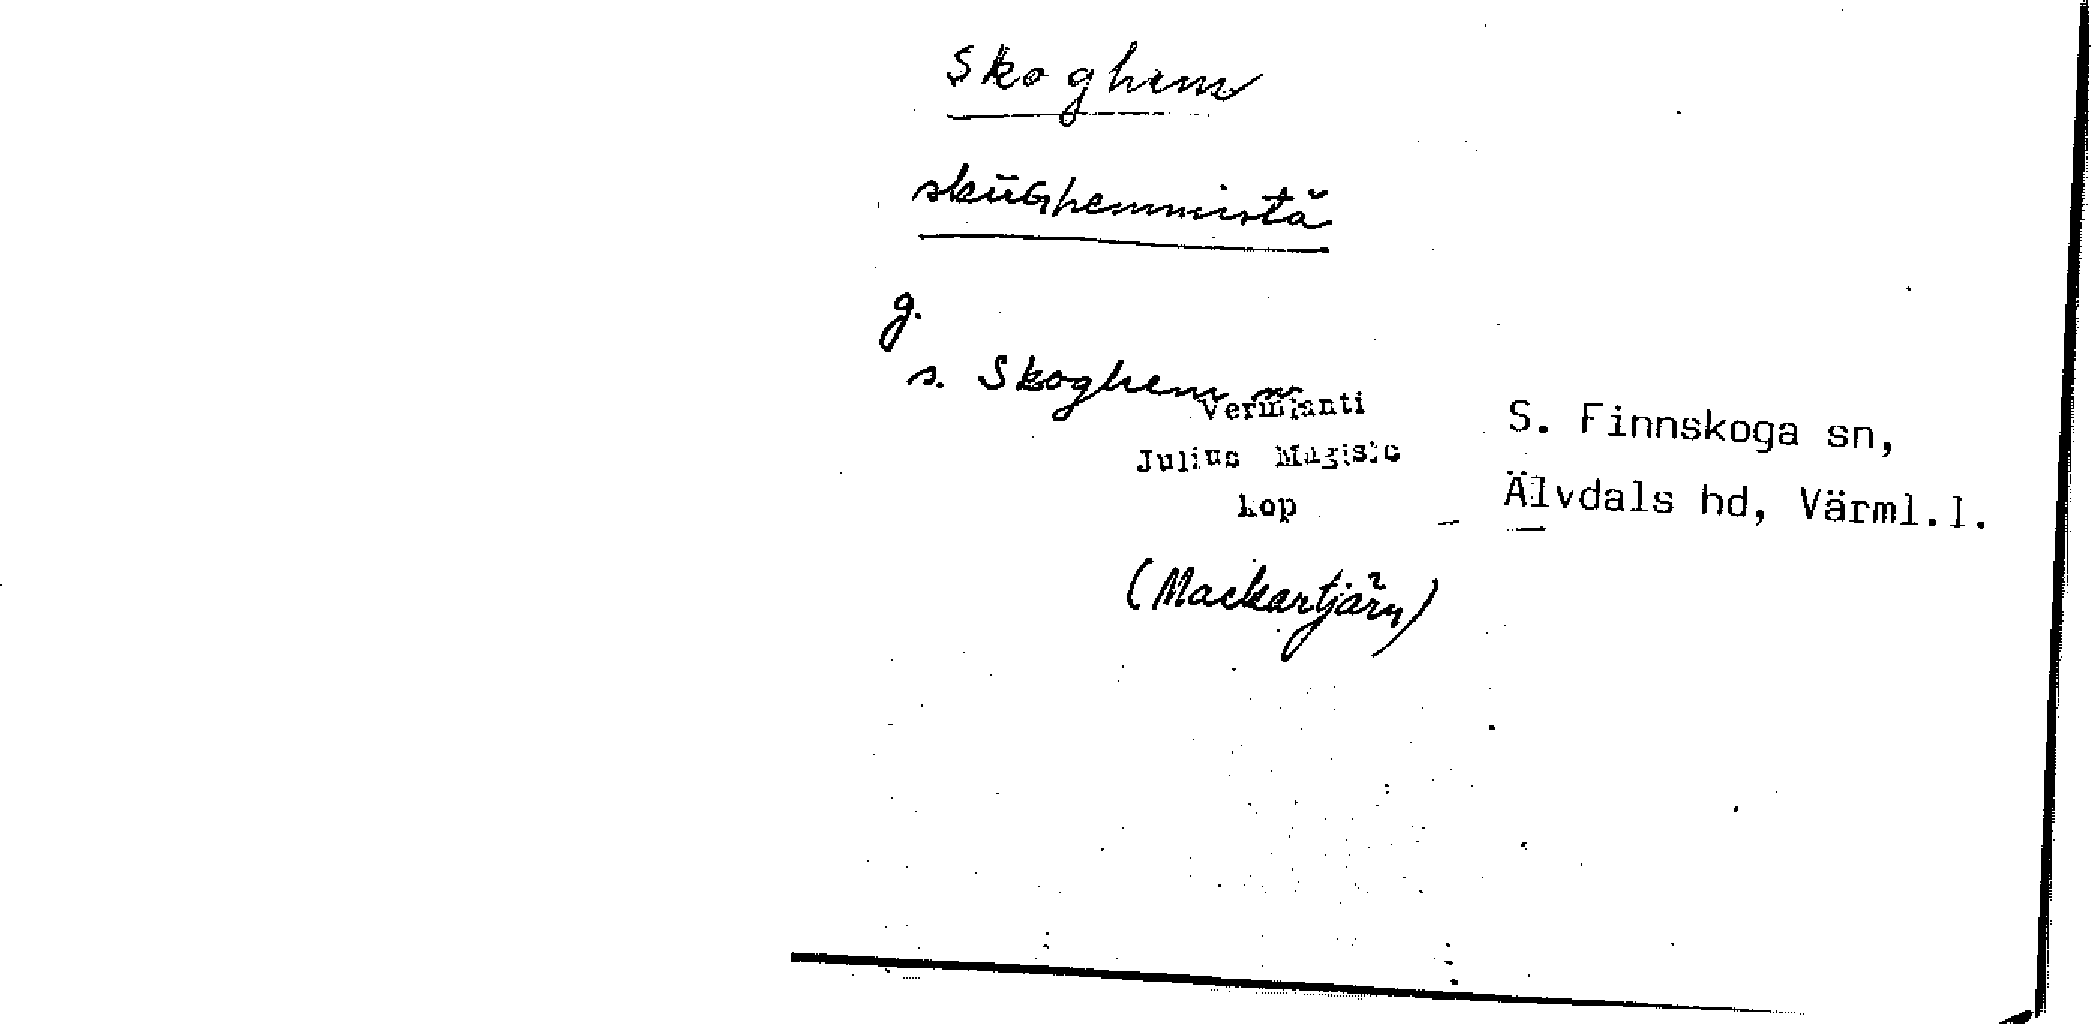 Skoghem
skūGhemmistä̆
g.
s. Skoghem
Vermlanti
S. Finnskoga sn,
Julius Mägiste
kop
Älvdals hd, Värml.l.
(Mackartjärn)